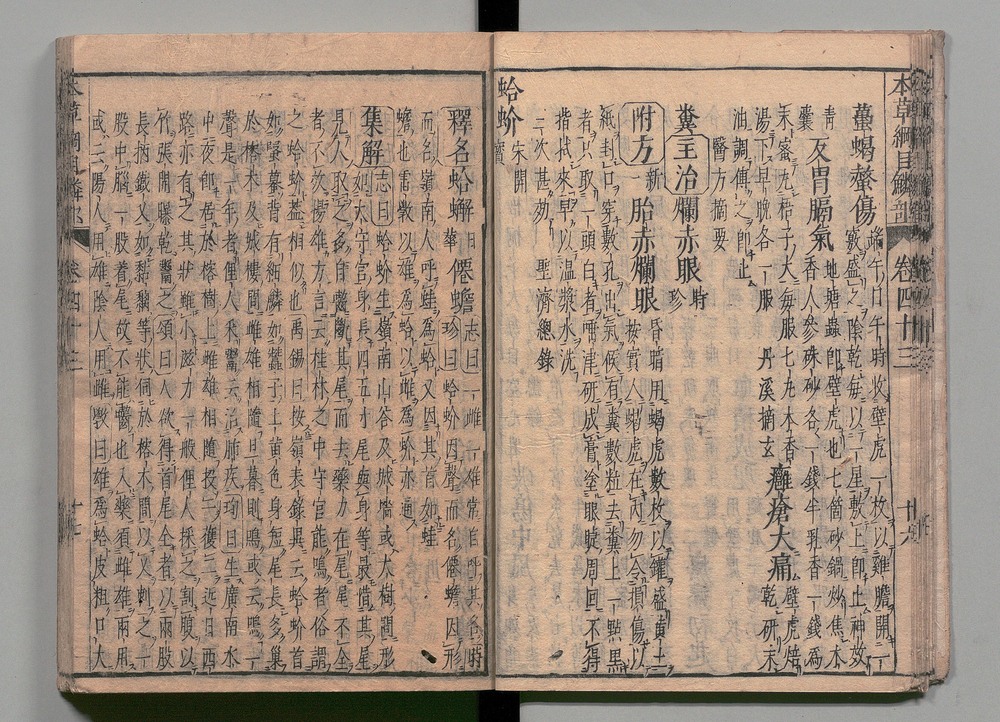 本草綱目鱗部 卷四十三 十六
蠆蝎螫傷 端午日午時收壁虎一枚以雞膽開一
竅盛之陰乾每以一星敷上即止神效
青囊 反胃膈氣 地塘蟲即壁虎也七箇砂鍋炒焦木
香人參硃砂各一錢半乳香一錢爲
末蜜丸梧子大每服七丸木香
湯下早晚各一服 丹溪摘玄 癰瘡大痛 壁虎焙乾研末
油調傅之即止
醫方摘要
糞 主治爛赤眼 時珍
附方 新一 胎赤爛眼 昏暗用蝎虎數枚以鑵盛黃土
按實入蝎虎在内勿令損傷以
紙封口穿數孔出氣候有糞數粒去糞上一點黑
者只取一頭白者唾津研成膏塗眼睫周回不得
揩拭來早以温漿水洗
二次甚効 聖濟總錄
蛤蚧 宋開寶
釋名 蛤蟹 日華 僊蟾 志曰一雌一雄常自呼其名時
珍曰蛤蚧因聲而名僊蟾因形
而名嶺南人呼蛙爲蛤又因其首如蛙
蟾也雷斆以雄爲蛤以雌爲蚧亦通
集解 志曰蛤蚧生嶺南山谷及城牆或大樹間形
如大守宮身長四五寸尾與身等最惜其尾
見人取之多自齧斷其尾而去藥力在尾尾不全
者不效揚雄方言云桂林之中守宮能鳴者俗謂
之蛤蚧葢相似也禹錫曰按嶺表錄異云蛤蚧首
如蝦蟇背有細鱗如蠶子土黃色身短尾長多巢
於榕木及城樓間雌雄相隨旦暮則鳴或云鳴一
聲是一年者俚人采鬻云治肺疾珣曰生廣南水
中夜即居於榕樹上雌雄相隨投一獲二近日西
路亦有之其狀雖小滋力一般俚人採之割腹以
竹張開曝乾鬻之頌曰人欲得首尾全者以兩股
長柄鐵叉如黏黐竿狀伺於榕木間以叉刺之一
股中腦一股着尾故不能齧也入藥須雌雄兩用
或云陽人用雄陰人用雌斆曰雄爲蛤皮粗口大